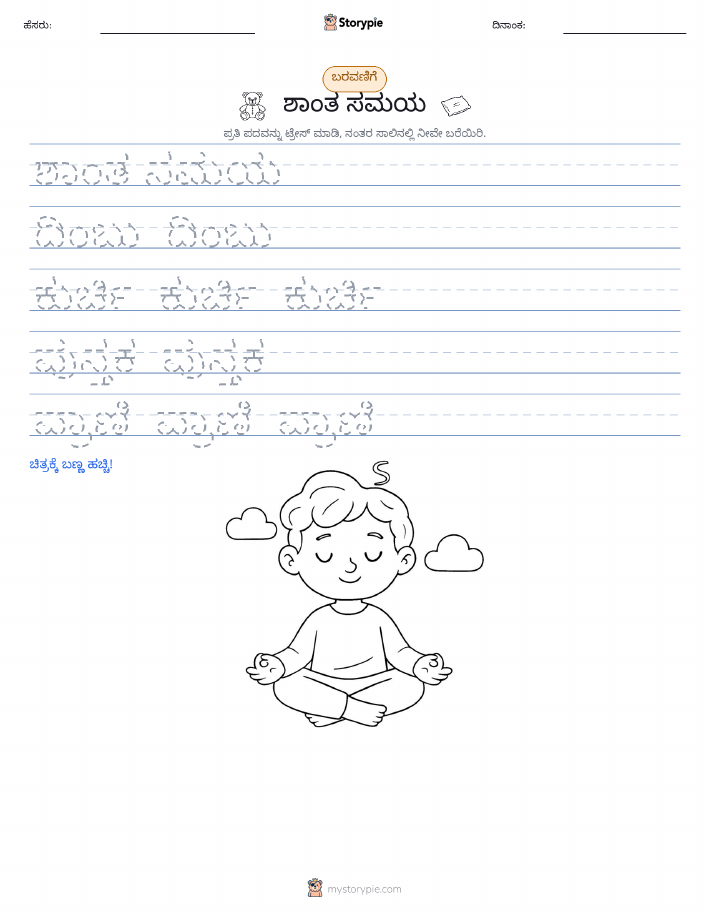 ಹೆಸರು:
Storypie
ದಿನಾಂಕ:
ಬರವಣಿಗೆ
ಶಾಂತ ಸಮಯ
ಪ್ರತಿ ಪದವನ್ನು ಟ್ರೇಸ್ ಮಾಡಿ, ನಂತರ ಸಾಲಿನಲ್ಲಿ ನೀವೇ ಬರೆಯಿರಿ.
ಶಾಂತ ಸಮಯ
ದಿಂಬು ದಿಂಬು
ಕುರ್ಚಿ ಕುರ್ಚಿ ಕುರ್ಚಿ
ಪುಸ್ತಕ ಪುಸ್ತಕ
ಪ್ರಾಣಿ ಪ್ರಾಣಿ ಪ್ರಾಣಿ
ಚಿತ್ರಕ್ಕೆ ಬಣ್ಣ ಹಚ್ಚಿ!
mystorypie.com